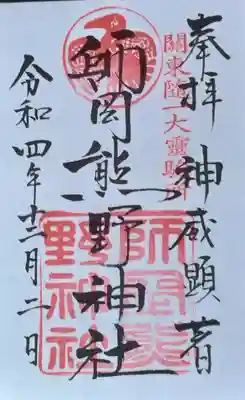 奉拝 神威顕著
關東隨一大靈驗所
師岡熊野神社
令和四年十二月二日
師岡熊
野神社